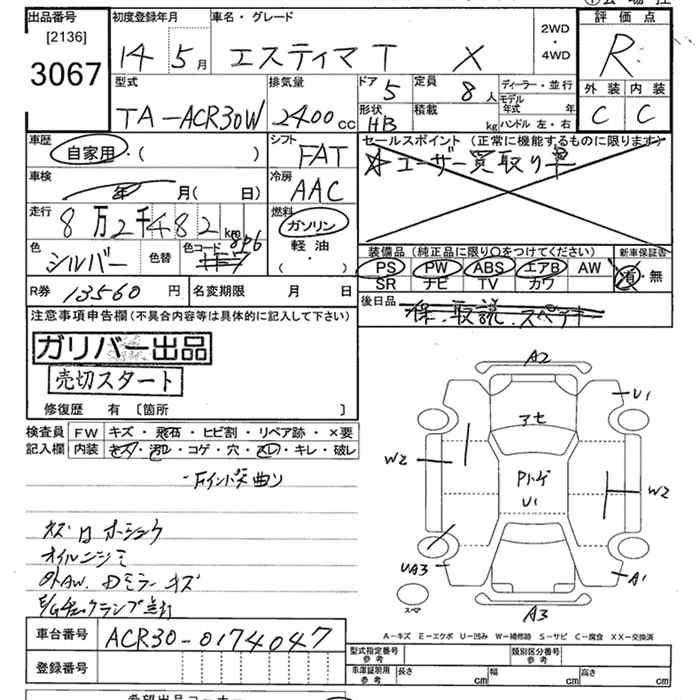 出品番号 初度登録年月 車名・グレード 2WD・4WD 評価点
[2136]
3067 14 5月 エスティマT X R
型式 排気量 ドア 5 定員 8人 ディーラー・並行 外装 内装
TA-ACR30W 2400cc 形状 HB 積載 kg モデル年式 年 C C
ハンドル 左・右
車歴 自家用・( ) シフト FAT セールスポイント (正常に機能するものに限ります)
ユーザー買取り車
車検 年 月(日) 冷房 AAC
走行 8万2千482km 燃料 ガソリン・軽油・( )
色 シルバー 色替 色コード
装備品 (純正品に限り○をつけてください) 新車保証書
PS PW ABS エアB AW 有・無
SR ナビ TV カワ
R券 13560円 名変期限 月 日 後日品
保.取説.スペアキー
注意事項申告欄(不具合内容等は具体的に記入して下さい)
ガリバー出品
売切スタート
修復歴 有 [箇所 ]
検査員 FW キズ・飛石・ヒビ割・リペア跡・×要
記入欄 内装 キズ・汚れ・コゲ・穴・スレ・キレ・破レ
キズ
オイルニジミ
外AW. Dミラーキズ
A2
U1
アセ
W2
Pトゲ
U1
W2
UA3
A1
スペア
A3
A-キズ E-エクボ U-凹み W-補修跡 S-サビ C-腐食 XX-交換済
車台番号 ACR30-0174047
登録番号
型式指定番号 参考 類別区分番号 参考
車庫証明用 参考 長さ cm 幅 cm 高さ cm
希望出品コーナー